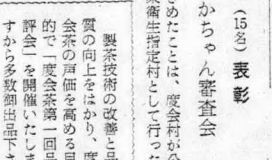 (15名) 表彰
かちゃん審査会
きめたことは、度会村が公
衆衛生指定村として行った
製茶技術の改善と品
質の向上をはかり、度
会茶の声価を高める目
的で「度会茶第一回品
評会」を開催いたしま
すから多数御出品下さ